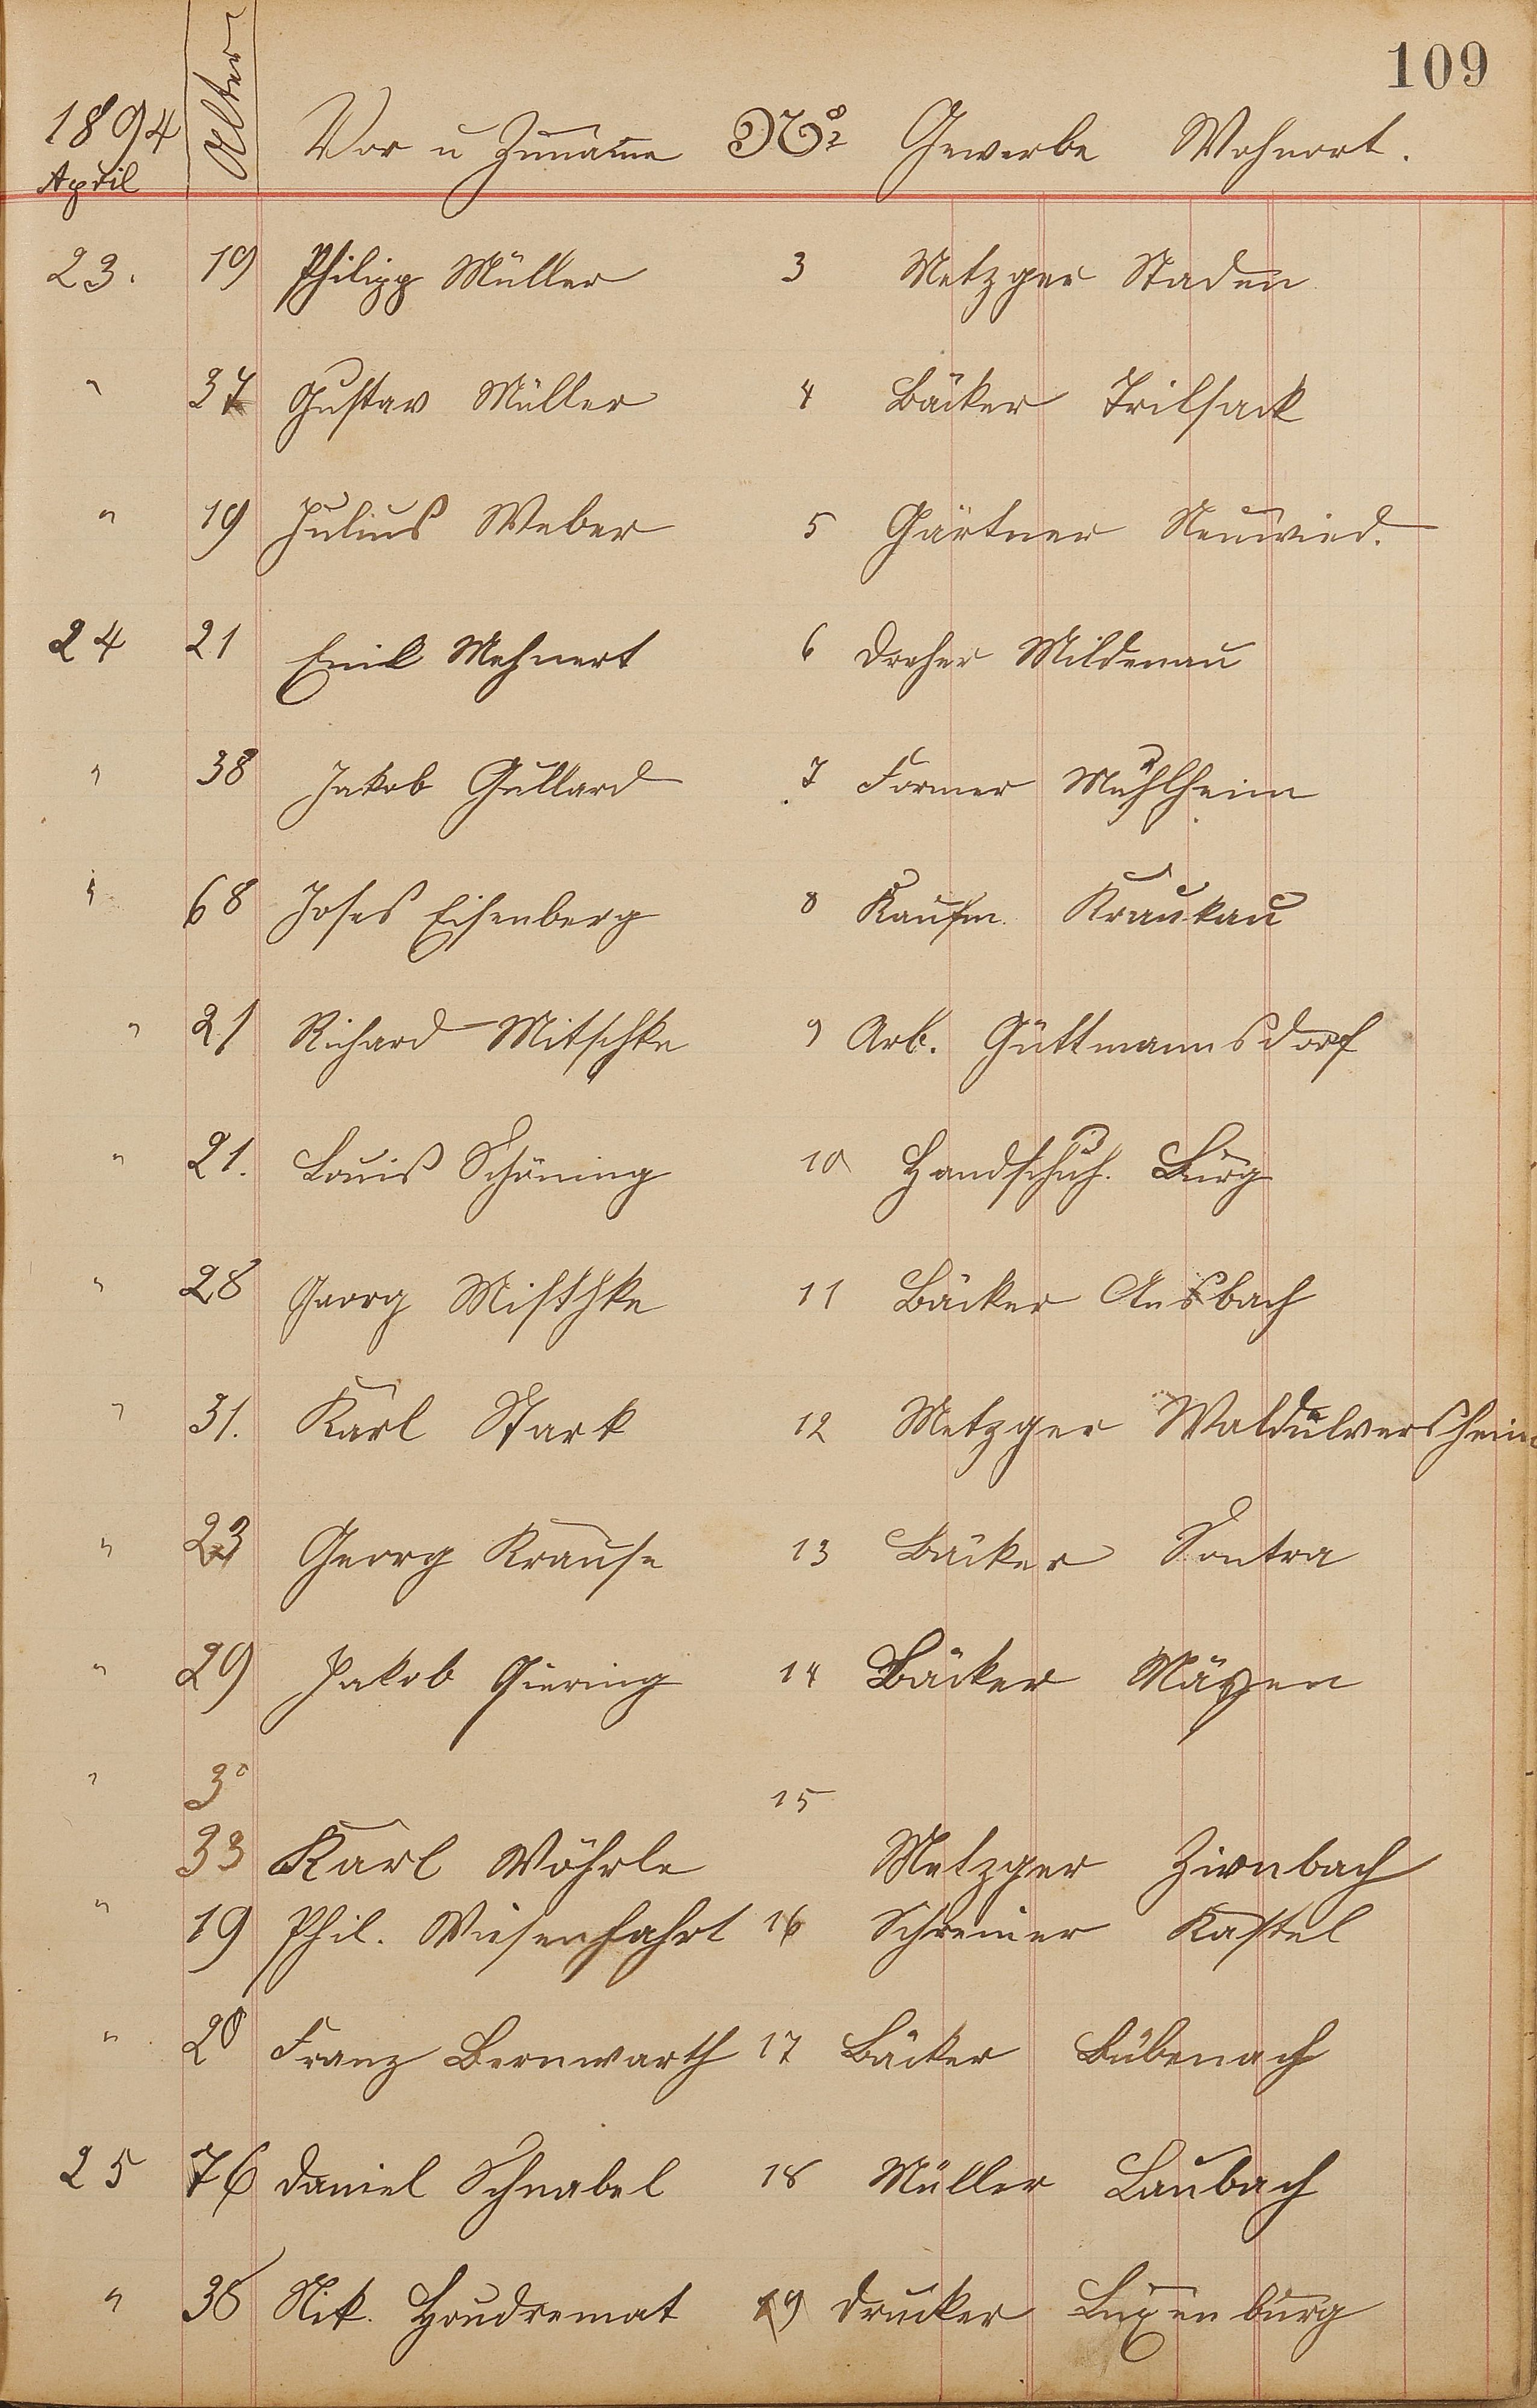 109
1894 Alter Vor u Zuname No Gewerbe Wohnort.
April
23. 19 Philipp Müller 3 Metzger Staden
" 37 Gustav Müller 4 Bäcker Trilsack
" 19 Julius Weber 5 Gärtner Neuwied.
24 21 Emil Mehnert 6 Dreher Mildenau
" 38 Jakob Gullard 7 Former Mühlheim
" 68 Joses Eisenberg 8 Kaufm. Kraukau
" 21 Richard Mitschke 9 Arb. Güttmannsdorf
" 21. Louis Schöning 10 Handschuh. Burg
" 28 Georg 11 Bäcker Ansbach
" 31. Karl Stark 12 Metzger Waldulversheim
" 23 Georg Krause 13 Bäcker Sontra
" 29 Jakob Giering 14 Bäcker Mäyen
" 30 15
33 Karl Wöhrle Metzger Zirnbach
" 19 Phil. Wiesenfahrt 16 Schreiner Kastel
" 20 Franz Bernwarth 17 Bäcker Bubenach
25 76 Daniel Schnabel 18 Müller Laubach
" 38 Nik. Houdremat 19 Drucker Luxenburg